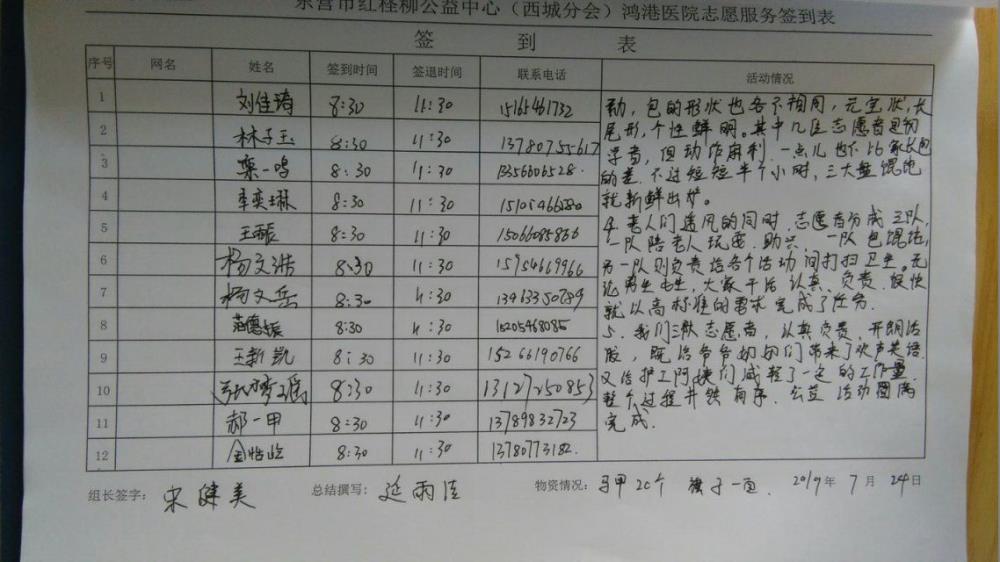 东营市红柽柳公益中心（西城分会）鸿港医院志愿服务签到表
签 到 表
序号 网名 姓名 签到时间 签退时间 联系电话 活动情况
1 刘佳琦 8:30 11:30 15165461732
2 林子玉 8:30 11:30 13780755617
3 栾一鸣 8:30 11:30 13356606528
4 李奕琳 8:30 11:30 15105466280
5 王振 8:30 11:30 15066085866
6 杨文浩 8:30 11:30 15954669966
7 杨文岳 8:30 11:30 13963350789
8 范德振 8:30 11:30 15205468085
9 王新凯 8:30 11:30 15266190766
10 8:30 11:30 13127250853
11 郝一甲 8:30 11:30 13789832723
12 金怡屹 8:30 11:30 13780773182
勃，包的形状也各不相同，元宝状，长
尾形，个性鲜明。其中几位志愿者是初
学者，但动作麻利，一点儿也不比家长包
的差，不过短短半个小时，三大盘馄饨
就新鲜出炉。
4. 老人们透风的同时，志愿者分成三队，
一队陪老人玩耍、助兴，一队包馄饨，
另一队则负责给各个活动间打扫卫生。无
论男生女生，大家干活认真、负责，很快
就以高标准的要求完成了任务。
5、我们三队志愿者，认真负责，开朗活
脱，既给爷爷奶奶们带来了欢声笑语，
又给护工阿姨们减轻了一定的工作量，
整个过程井然有序，公益活动圆满
完成．
组长签字： 宋健美 总结撰写： 延雨佳 物资情况： 马甲20个 旗子一面． 2019年 7月 24日